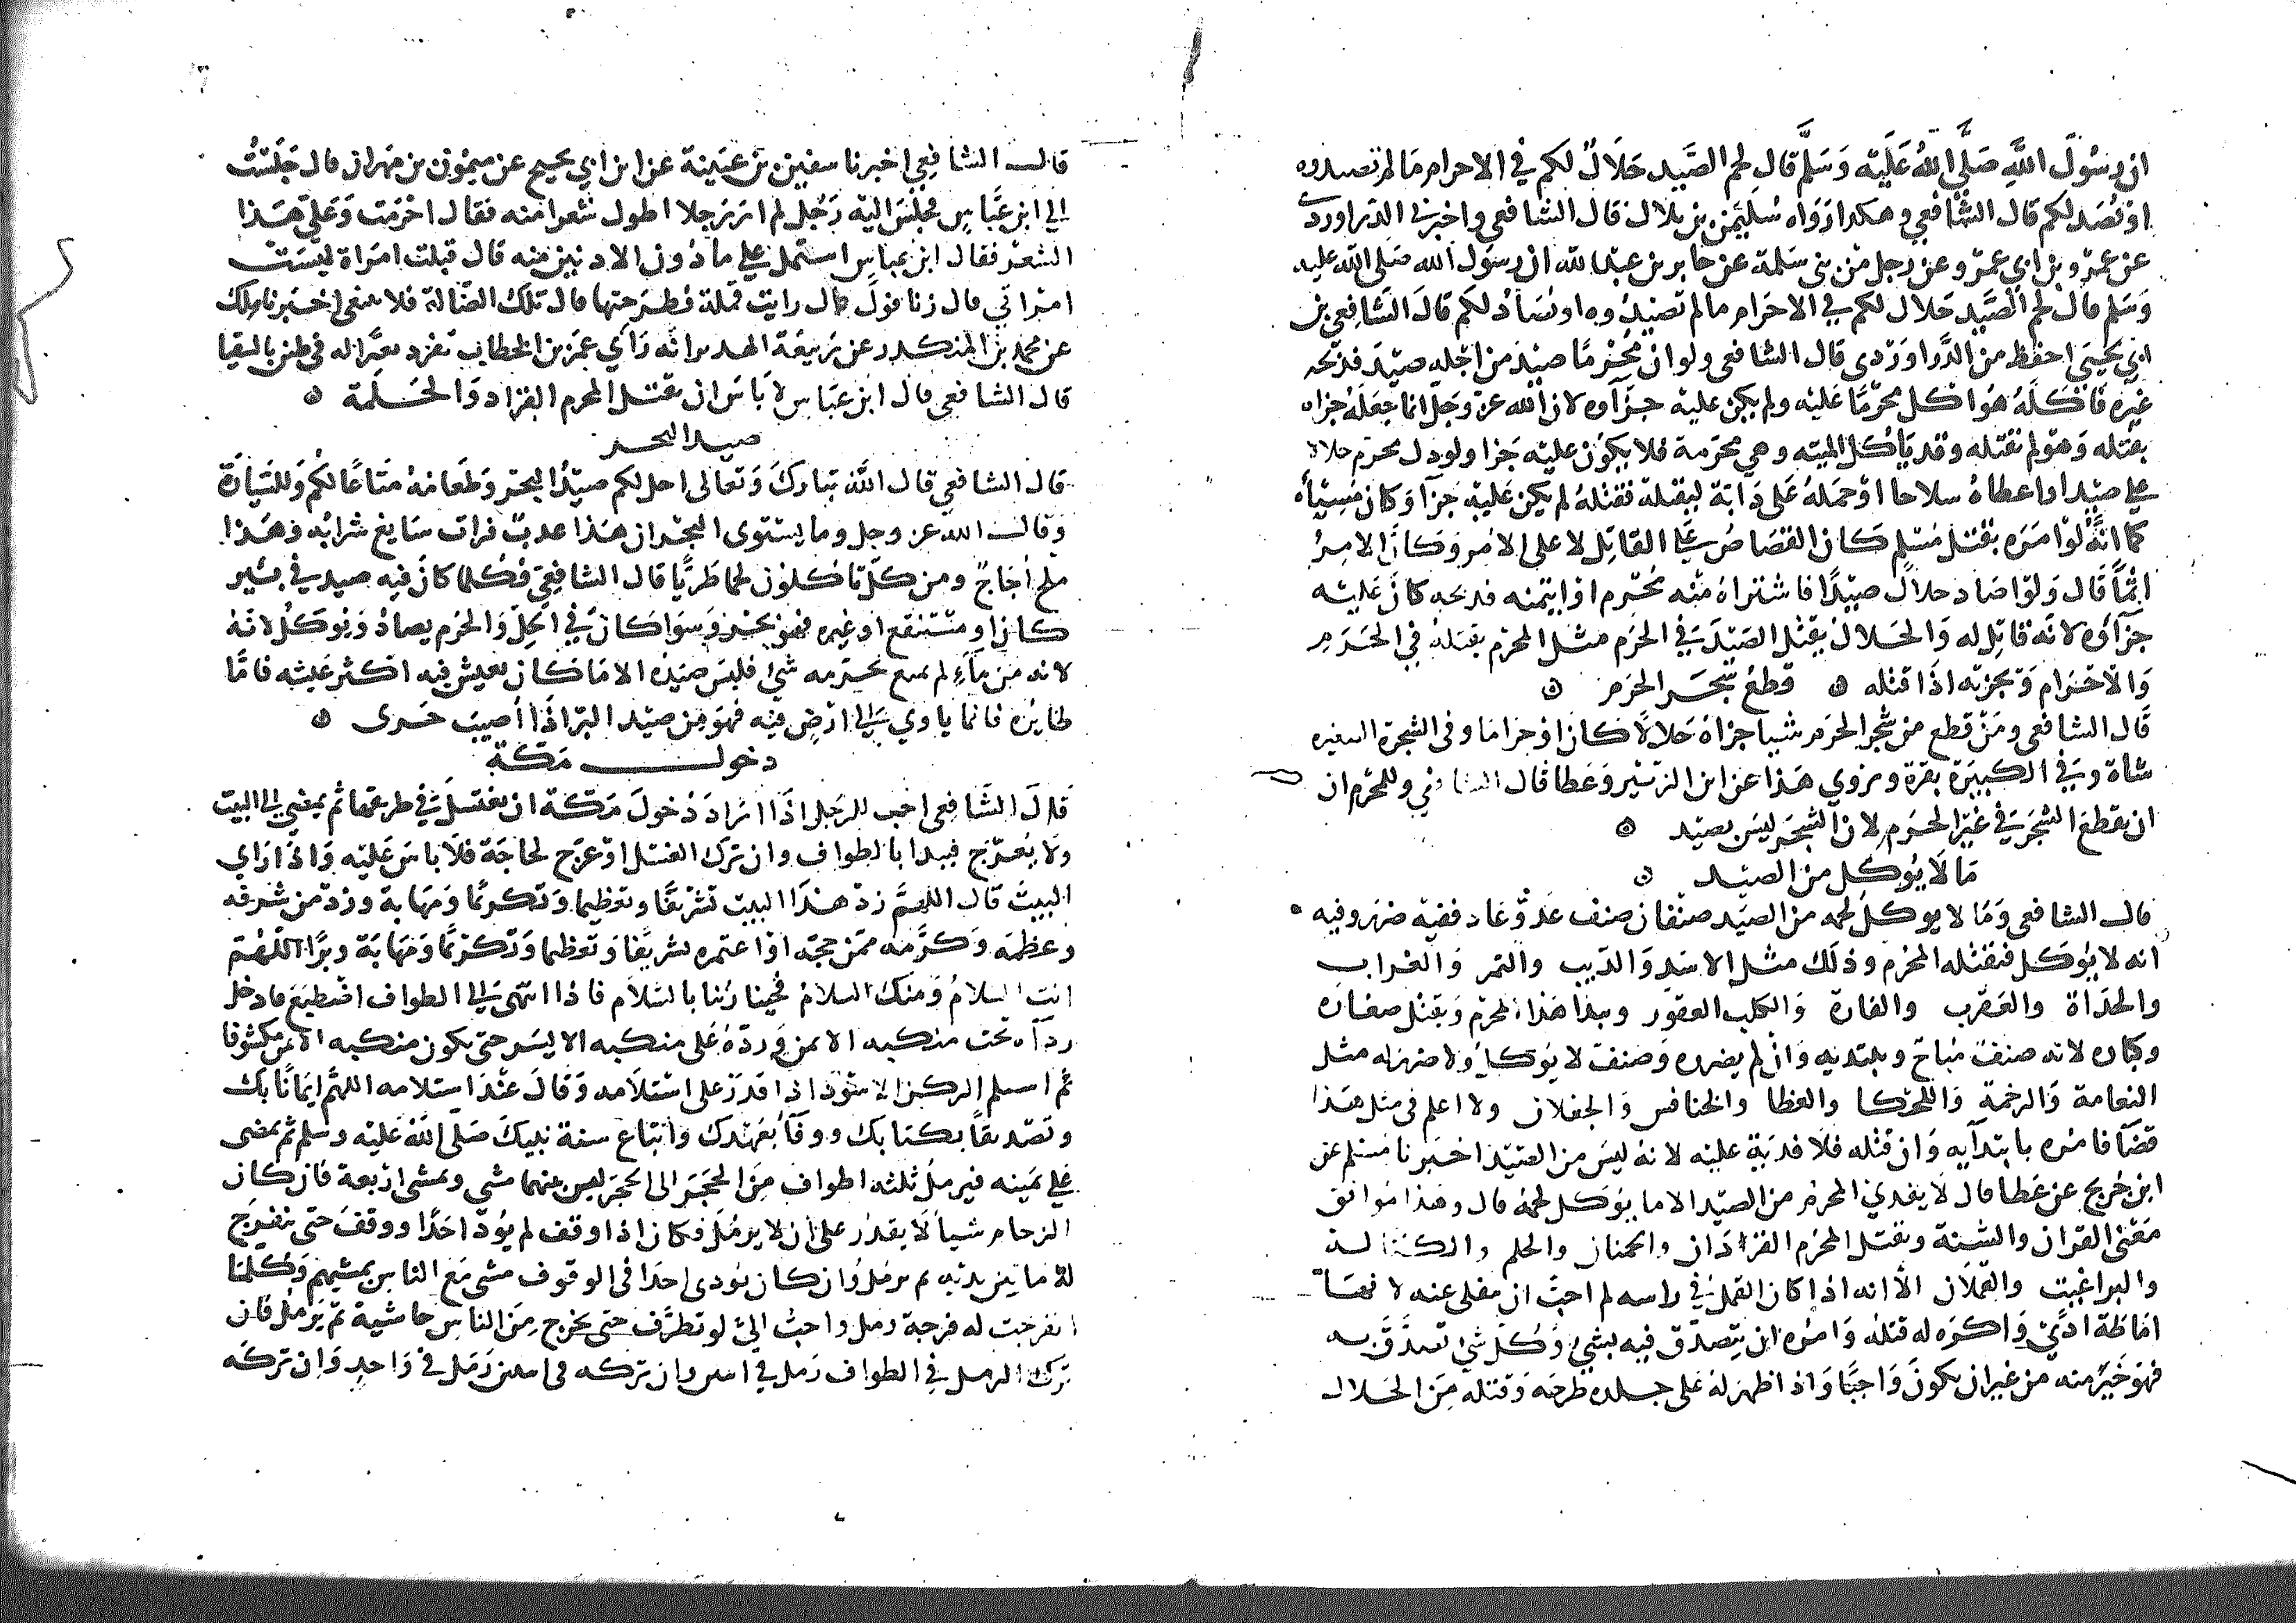 ان رسُولَ اللَّهِ صَلَّى اللهُ عَلَيْه وَسَلَّم قالِ لحم الصَّيد حَلَالٌ لكم في الاحرام مَا لم تصيدوه
اوْ يُصَد لكم قال الشَّافعي وهكذا رَوَاه سُليمٰن بن بلال قال الشافعي واخبرني الدراوردي
عن عَمْرو بن ابي عمرو عن رجل من بني سَلمة عن جابر بن عبد الله ان رسُول الله صَلى الله عليه
وَسَلم قال لحم الصَّيد حَلال لكم في الاحرَام ما لم تصيدُوه او يُصَادُ لكم قالَ الشافِعي بن
ابي يحيىَ احفظ من الدَّرَاوردى قال الشافعى ولو ان مُحْرمًا صِيْدَ من اجْله صيْدَ فذبحه
غيْره فاكَلَهُ هُوَ اكل محرّمًا عَليْه ولم يكن عليْه جزآوه لان الله عز وجَل انما جعَلَهُ جزاه
بقتله وَهوَ لم يقتله وقد يَاكُل الميته وهي محرّمة فلا يكوُن عليْه جَزا ولو دل محرم حلالا
على صيْدٍ او اعطاهُ سلاحا اوْ حمَلهُ عَلى دَابة ليقتله فقتْلهُ لم يكن عَليْهِ جزآ وَكان مُسيْأ
كما انهُ لوْ امَرَه بقتل مُسْلِم كَان القصَاصُ عَلى القاتِل لا على الامر وَكانَ الامِرُ
اثمًا قَال وَلوْ صَاد حلالٌ صَيْدًا فاشتراهُ منْه مُحْرم او اتهبه فذبحه كانَ عَليْه
جزآؤه لانه قاتِل له وَالحَلال يَقتل الصَيْدَ في الحَرَم مثل المحرم يقتلهُ في الحَرَم
وَالاحْرَام وَيجزيه اذَا قتله ۞ قطعُ شَجَر الحَرَم ۞
قَال الشافعى ومَنْ قطع من شَجر الحَرَم شيا جزاهُ حَلالًا كان اوْ حرَامًا وفي الشجرة الصغيره
شاة وَفي الكبيرَة بقرة ويروي هَذا عن ابن الزبيْر وَعَطا قال الشافعي وللمُحْرم ان
ان يقطعَ الشجَر في غيْر الحَرَم لان الشجَر ليسَ بصيْد ۞
مَا لَا يُوكل من الصيْد ۞
قال الشافعى وَمَا لا يوكلُ لحمه من الصيَد صنْفان صنف عَدوٌّ عَاد ففيْه ضرَر وفيه
انه لا يُوكَل فيقتُله المُحْرم وذلَك مثل الاسَدِ وَالذيب والنمر وَالغراب
والحدَاة والعَقرب والفارة وَالكلب العَقور ويبدا هَذا المحرم وَيقتل صغاره
وكباره لانه صنفٌ مُبَاح ويبتديه وَانْ لم يضره وَصنف لا يُوكلُ ولا ضرر له مثل
النعامة وَالرخمة وَاللحكا والعظا والخنافس وَالجعلان ولا اعلم في مثل هَذا
قضآ فامُره بابتدآيه وَان قتْله فلَا فدْيَة عليْه لانهُ ليسَ من الصَيْد اخبرنا مُسْلم عن
ابن جُريج عن عَطا قال لا يَفدي المحرم من الصيْد الا ما يُؤكل لحمهُ قال وهَذا مُوَافق
مَعْنى القران وَالسُّنة ويقتل المحرم القِرْدَان والحمنان والحلم والكتالة
والبراغيث والقملان الا انه اذا كان القمل في راسه لم احبَّ ان يفلى عنه لانهُ
اماطة اذًى وَاكره له قتلهُ وَامُره ان يتصدّق فيه بشي وَكل شي تصدَّق به
فهوَ خَيرٌ منه من غير ان يكونَ وَاجبًا وَاذا ظهر لهُ على جسلده طرحَه وَقتله مِنَ الحَلال
قال الشافِعي اخبرنا سفيٰن بن عيَينة عن ابن ابي نجيح عن ميْمُون بن مهران قال جَلسْتُ
الي ابن عَبَّاسٍ فجلسَ اليْه رَجُل لم ارَ رَجلا اطول شعرا منه فقال احْرَمت وَعَلَيَّ هَذا
الشعْر فقال ابن عباسٍ اشتمل على ما دُون الاذنين منه قال قبلت امرَاة ليسَت
امْراتي قال زنا فوك قال رايت قملة فطرَحتها قال تلك الضالة فلا تبتغى اخبرنا مالك
عن محمد بن المنكدر عن رَبيعَة الهدير انه رَأي عمَر بن الخطاب يُقرّد بعيْرا له في طين بالسقيا
قال الشافعي قال ابن عبّاس لا باسَ ان يقتل المحرم القراد وَالحَلمة ۞
صيد البحر
قال الشافعي قال اللَّه تبَارك وَتعالى احل لكم صيْدُ البَحْر وَطعَامهُ متَاعًا لكُم وَللسَّيارَة
وقال الله عز وجل وما يستوى البحْران هَذا عذبٌ فرات سَايغ شرابُه وَهَذا
ملح أجاجٌ ومن كلٍّ تاكلون لحما طرِيًّا قال الشافِعي فكُلما كانَ فيه صيد في بئيرٍ
كان او مُسْتنقع او غيره فهوَ بحْر وَسوَا كانَ في الحِلِّ وَالحَرم يصادُ وَيُوكلُ لانهُ
لانه من مآءٍ لم يمنع بحرمه شئ فليسَ صَيْده الا مَا كان يعيش فيه اكثر عَيشه فامّا
طايرُه فانما ياوي الى ارْض فيه فهوَ مِن صيْد البرّ اذا أُصيبَ جزى ۞
دخول مَكّة
قالَ الشافعى احب للرجل اذَا ارَادَ دُخولَ مَكّة ان يغتسلَ في طرفها ثم يمضي الى البيت
ولا يُعرّج فيبدا بالطواف وان ترك الغسْل اوْ عرّج لحاجَة فلَا باسَ عَليْه وَاذا رَاي
البيتَ قال اللهمَّ زدْ هَذا البيتَ تشْريفًا وتعظيما وَتكريمًا وَمَهابة وزدْ من شرفه
وعظمَه وَكرَّمه ممّن حجّه اوْ اعتمره تشريْفا وَتعظيما وَتكريمًا وَمَهابة وبِرًّا اللّهُمّ
انتَ السلامُ وَمنك السلامُ فحَينا رُبنا بالسَّلام فاذا انتهى الى الطواف اضْطبعَ فادخل
ردآه تحت منكبه الايمن وَردّهُ عَلى منكبه الايسر حتى يكون منكبه الايمن مكشوفا
ثمَّ استلم الركن الاسْوَد اذا قدَر على اسْتلامه وَقالَ عنْدَ استلامه اللهمّ ايمَانًا بك
وتصْديقاً بكتابك ووفآ بعَهْدك واتباع سنة نبيك صَلى اللَّهُ عَليْه وسلم ثم يمضى
على يمَينه فيرمل ثلثه اطواف مِنَ الحَجَر الى الحَجَر ليسَ بينهما مشى وَيمشى ارْبعة فان كان
الزحام شيأً لا يقدر على ان لا يرمُلَ فكان اذا وقف لم يُوذ احَدًا ووقفَ حَتى ينفرج
لهُ ما بَيْن يديْه ثم يرمُل وَان كان يُوذى احَدا في الوقوف مشى مَع الناس بمَشيهم وَكلما
انفرجت له فرجة رمل واحبُّ اليَّ لو تطرَّف حتى يخرج مِنَ الناسِ حاشية ثمّ يَرمُل فان
ترك الرمل في الطواف رَمل في اثنين وان تركه في اثنين رَمَل في وَاحِدٍ وَان تركه